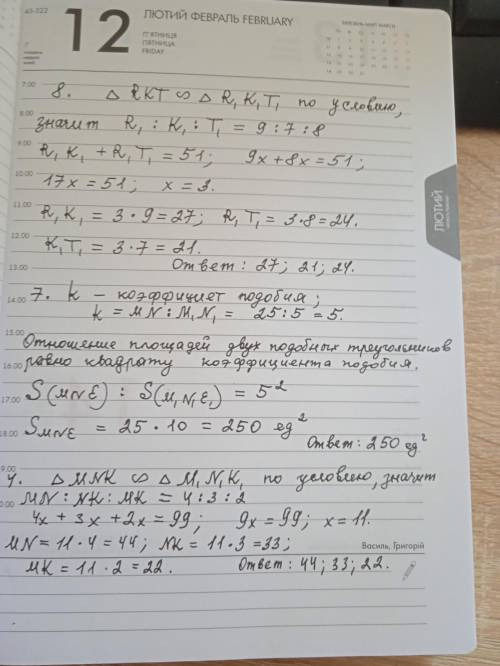 43-322
12
ЛЮТИЙ ФЕВРАЛЬ FEBRUARY
П'ЯТНИЦЯ
ПЯТНИЦА
FRIDAY
7.00
8. △ RKT ∽ △ R₁K₁T₁ по условию,
8.00
значит R₁ : K₁ : T₁ = 9 : 7 : 8
9.00
R₁K₁ + R₁T₁ = 51; 9x + 8x = 51;
10.00
17x = 51; x = 3.
11.00
R₁K₁ = 3 · 9 = 27; R₁T₁ = 3 · 8 = 24.
12.00
K₁T₁ = 3 · 7 = 21.
Ответ: 27; 21; 24.
13.00
7. k – коэффициет подобия;
14.00
k = MN : M₁N₁ = 25 : 5 = 5.
15.00
Отношение площадей двух подобных треугольников
16.00
равно квадрату коэффициента подобия.
17.00
S(MNE) : S(M₁N₁E₁) = 5²
18.00
S MNE = 25 · 10 = 250 ед²
Ответ: 250 ед²
19.00
4. △ MNK ∽ △ M₁N₁K₁ по условию, значит
MN : NK : MK = 4 : 3 : 2
4x + 3x + 2x = 99; 9x = 99; x = 11.
MN = 11 · 4 = 44; NK = 11 · 3 = 33;
Василь, Григорій
MK = 11 · 2 = 22. Ответ: 44; 33; 22.
ЛЮТИЙ